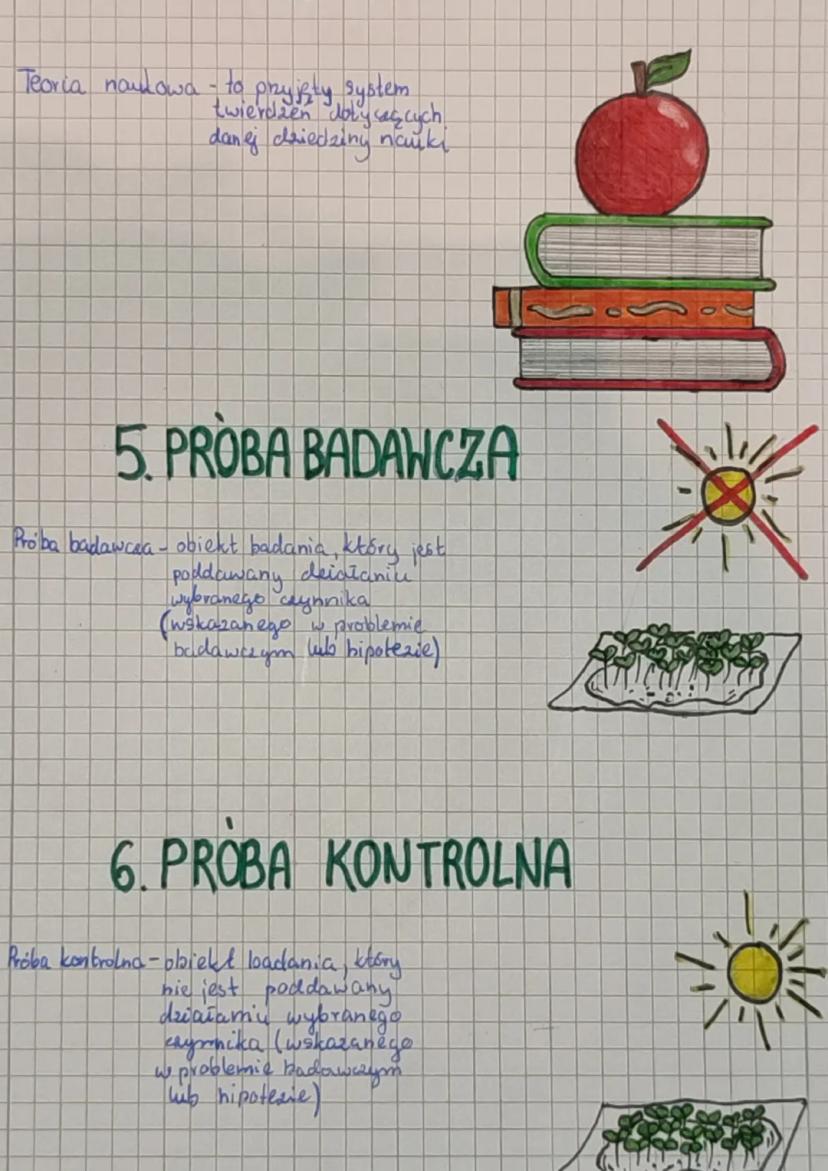 Teoria naukowa - to przyjęty system
twierdzeń dotyczących
danej dziedziny nauki
5. PRÓBA BADAWCZA
Próba badawcza - obiekt badania, który jest
poddawany działaniu
wybranego czynnika
(wskazanego w problemie
badawczym lub hipotezie)
6. PRÓBA KONTROLNA
Próba kontrolna - obiekt badania, który
nie jest poddawany
działaniu wybranego
czynnika (wskazanego
w problemie badawczym
lub hipotezie)